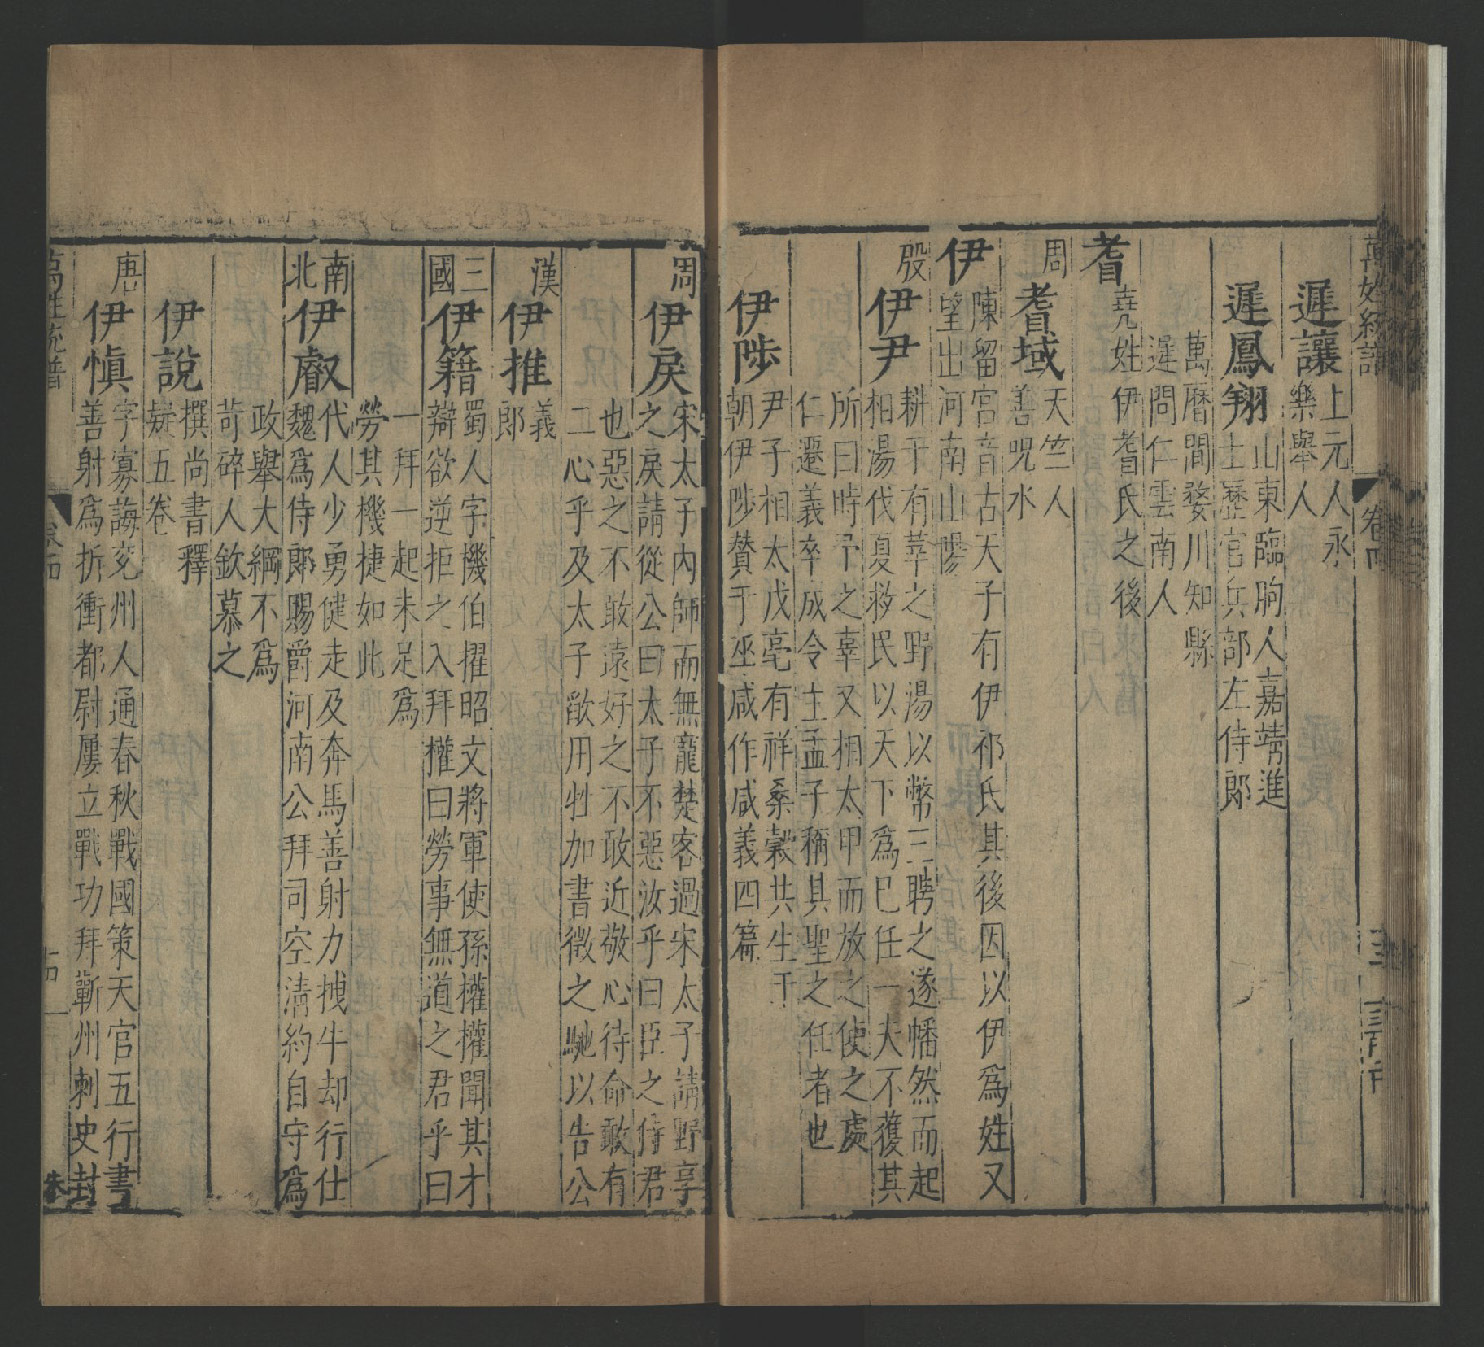 萬姓統譜 卷四
遲讓
上元人永
樂舉人
遲鳳翔
山東臨朐人嘉靖進
士歷官兵部左侍郎
萬曆間婺川知縣
遲問仁雲南人
耆
堯姓伊耆氏之後
周
耆域
天竺人
善咒水
伊
陳留宮音古天子有伊祁氏其後因以伊爲姓又
望出河南山陽
殷
伊尹
耕于有莘之野湯以幣三聘之遂幡然而起
相湯伐夏救民以天下爲已任一夫不獲其
所曰時予之辜又相太甲而放之使之處
仁遷義卒成令主孟子稱其聖之任者也
伊陟
尹子相太戊亳有祥桑榖共生于
朝伊陟贊于巫咸作咸義四篇
周
伊戾
宋太子內師而無寵楚客過宋太子請野享
之戾請從公曰太子不惡汝乎曰臣之侍君
也惡之不敢遠好之不敢近敬心待命敢有
二心乎及太子歃用牡加書徵之馳以告公
漢
伊推
義
郎
三國
伊籍
蜀人字機伯擢昭文將軍使孫權權聞其才
辯欲逆拒之入拜權曰勞事無道之君乎曰
一拜一起未足爲
勞其機捷如此
南北
伊馛
代人少勇健走及奔馬善射力拽牛却行仕
魏爲侍郎賜爵河南公拜司空清約自守爲
政舉大綱不爲
苛碎人欽慕之
伊說
撰尚書釋
疑五卷
唐
伊慎
字寡誨兖州人通春秋戰國策天官五行書
善射爲折衝都尉屢立戰功拜蘄州刺史封
萬姓統譜 卷四 十四